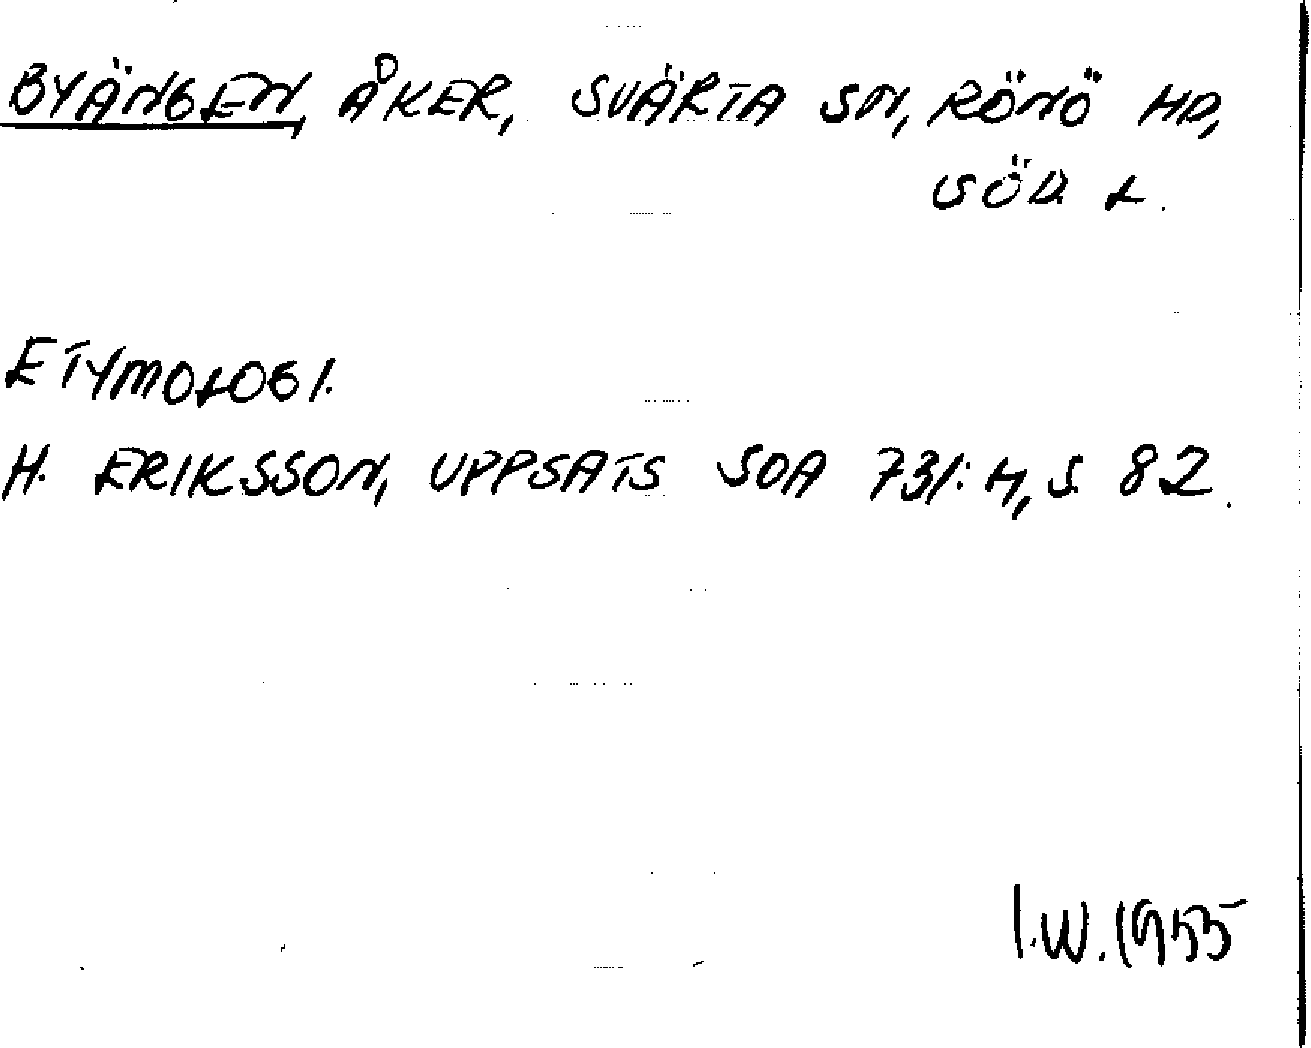 BYÄNGEN, ÅKER, SVÄRTA SN, RÖNÖ HD,
SÖD. L.
ETYMOLOGI.
H. ERIKSSON, UPPSATS SOA 731: 4, S. 82.
I.W. 1955